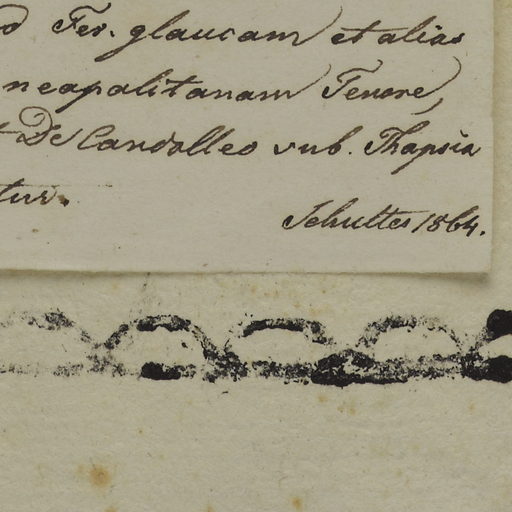 Fer. glaucam et alias
neapolitanam Tenore,
De Candolleo sub. Thapsia
tur.
Schultes 1864.